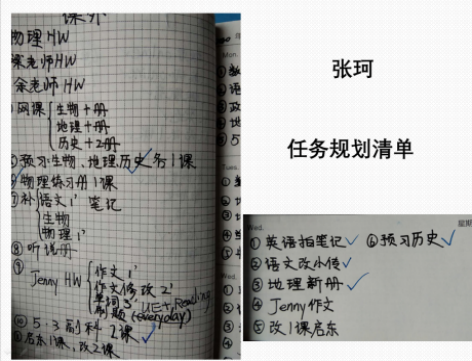 课外
物理HW
余老师HW
网课 生物+册
地理+册
历史+2册
预习生物、地理历史各1课
物理练习册1课
⑦补 语文1' 笔记
生物
物理1'
⑧听说册
⑨ Jenny HW 作文1'
作文修改2'
单词3' UE+Reading
刷题(everyday)
⑩5·3副科2课
启东1课、改2课
Mon.
Tues.
Wed.
张珂
任务规划清单
Wed.
星期
①英语抬笔记
⑥预习历史
②语文改小传
③地理新册
④Jenny作文
⑤改1课启东